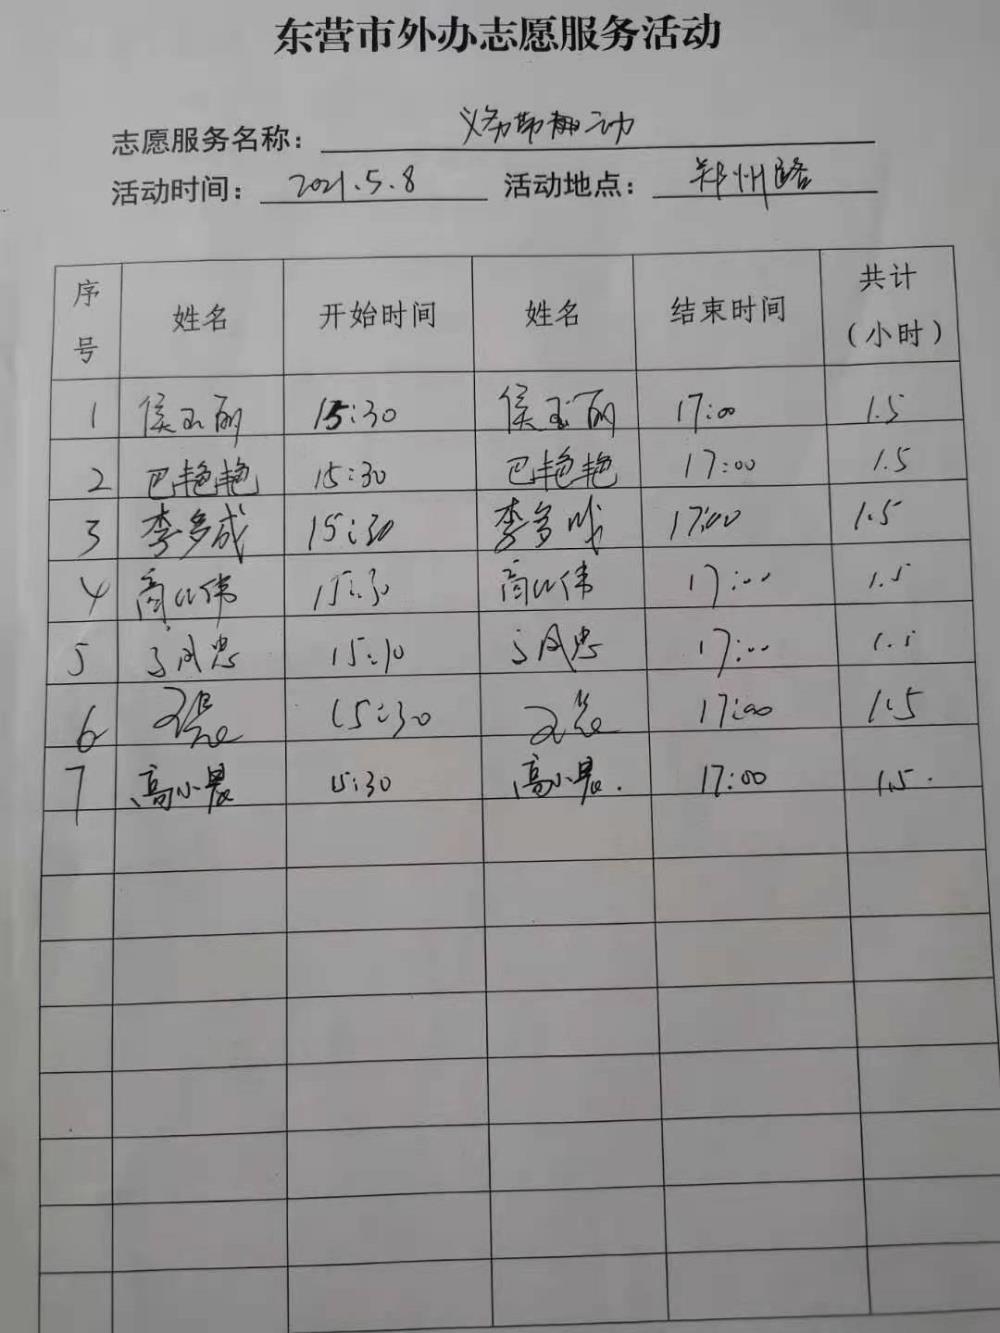 东营市外办志愿服务活动
志愿服务名称： 义务劳动
活动时间： 2021.5.8 活动地点： 郑州路
序号 姓名 开始时间 姓名 结束时间 共计（小时）
1 侯玉丽 15:30 侯玉丽 17:00 1.5
2 巴艳艳 15:30 巴艳艳 17:00 1.5
3 李多成 15:30 李多成 17:00 1.5
4 商以伟 15:30 商以伟 17:00 1.5
5 15:30 17:00 1.5
6 15:30 17:00 1.5
7 高小晨 15:30 高小晨. 17:00 1.5.